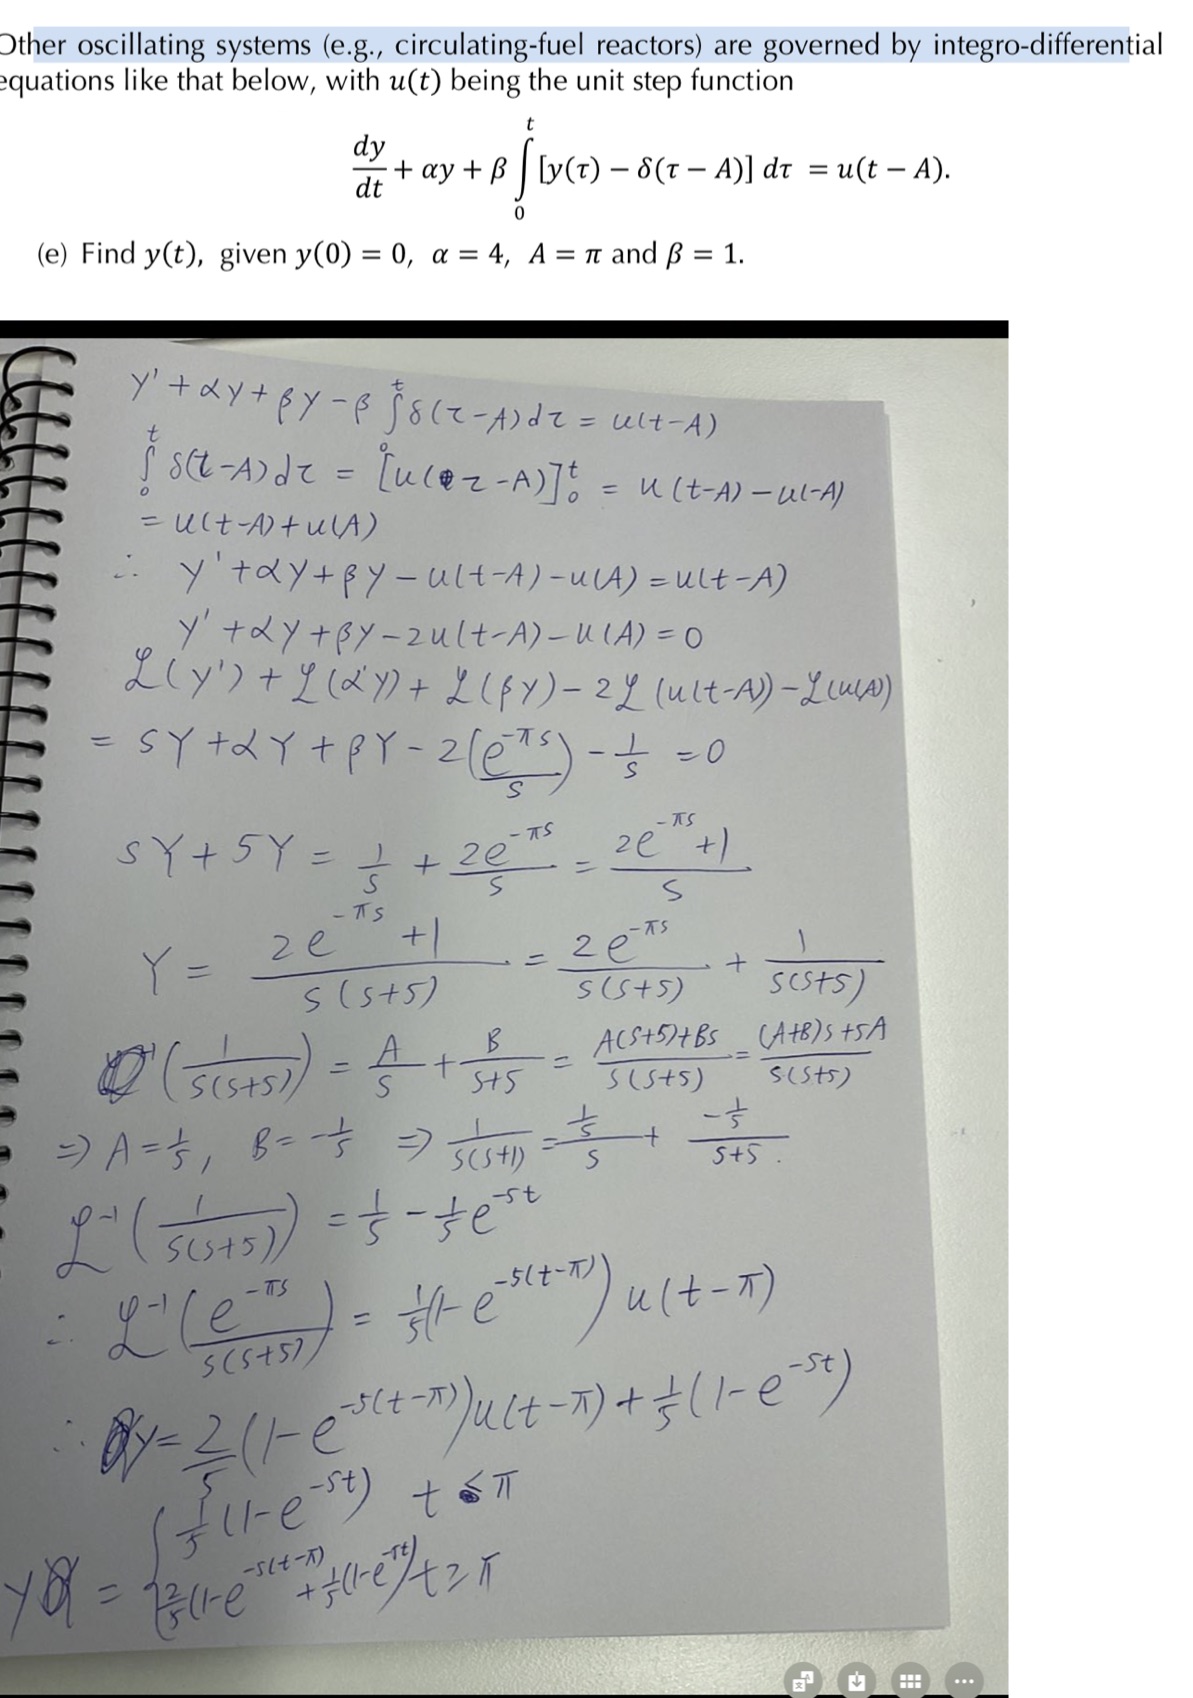 Other oscillating systems (e.g., circulating-fuel reactors) are governed by integro-differential
equations like that below, with u(t) being the unit step function
dy/dt + αy + β ∫₀ᵗ [y(τ) − δ(τ − A)] dτ = u(t − A).
(e) Find y(t), given y(0) = 0, α = 4, A = π and β = 1.
y' + αy + βy − β ∫₀ᵗ δ(τ−A)dτ = u(t−A)
∫₀ᵗ δ(t−A)dτ = [u(τ−A)]₀ᵗ = u(t−A) − u(−A)
= u(t−A) + u(A)
∴ y' + αy + βy − u(t−A) − u(A) = u(t−A)
y' + αy + βy − 2u(t−A) − u(A) = 0
ℒ(y') + ℒ(αy) + ℒ(βy) − 2ℒ(u(t−A)) − ℒ(u(A))
= sY + αY + βY − 2(e^(−πs)/s) − 1/s = 0
sY + 5Y = 1/s + 2e^(−πs)/s = (2e^(−πs) + 1)/s
Y = (2e^(−πs) + 1)/(s(s+5)) = 2e^(−πs)/(s(s+5)) + 1/(s(s+5))
(1/(s(s+5))) = A/s + B/(s+5) = (A(s+5)+Bs)/(s(s+5)) = ((A+B)s+5A)/(s(s+5))
⇒ A = 1/5, B = −1/5 ⇒ 1/(s(s+1)) = (1/5)/s + (−1/5)/(s+5).
ℒ⁻¹(1/(s(s+5))) = 1/5 − 1/5 e^(−5t)
∴ ℒ⁻¹(e^(−πs)/(s(s+5))) = 1/5(1−e^(−5(t−π)))u(t−π)
∴ y = 2/5(1−e^(−5(t−π)))u(t−π) + 1/5(1−e^(−5t))
1/5(1−e^(−5t)) t ≤ π
y = { 2/5(1−e^(−5(t−π)) + 1/5(1−e^(−5t)) t ≥ π